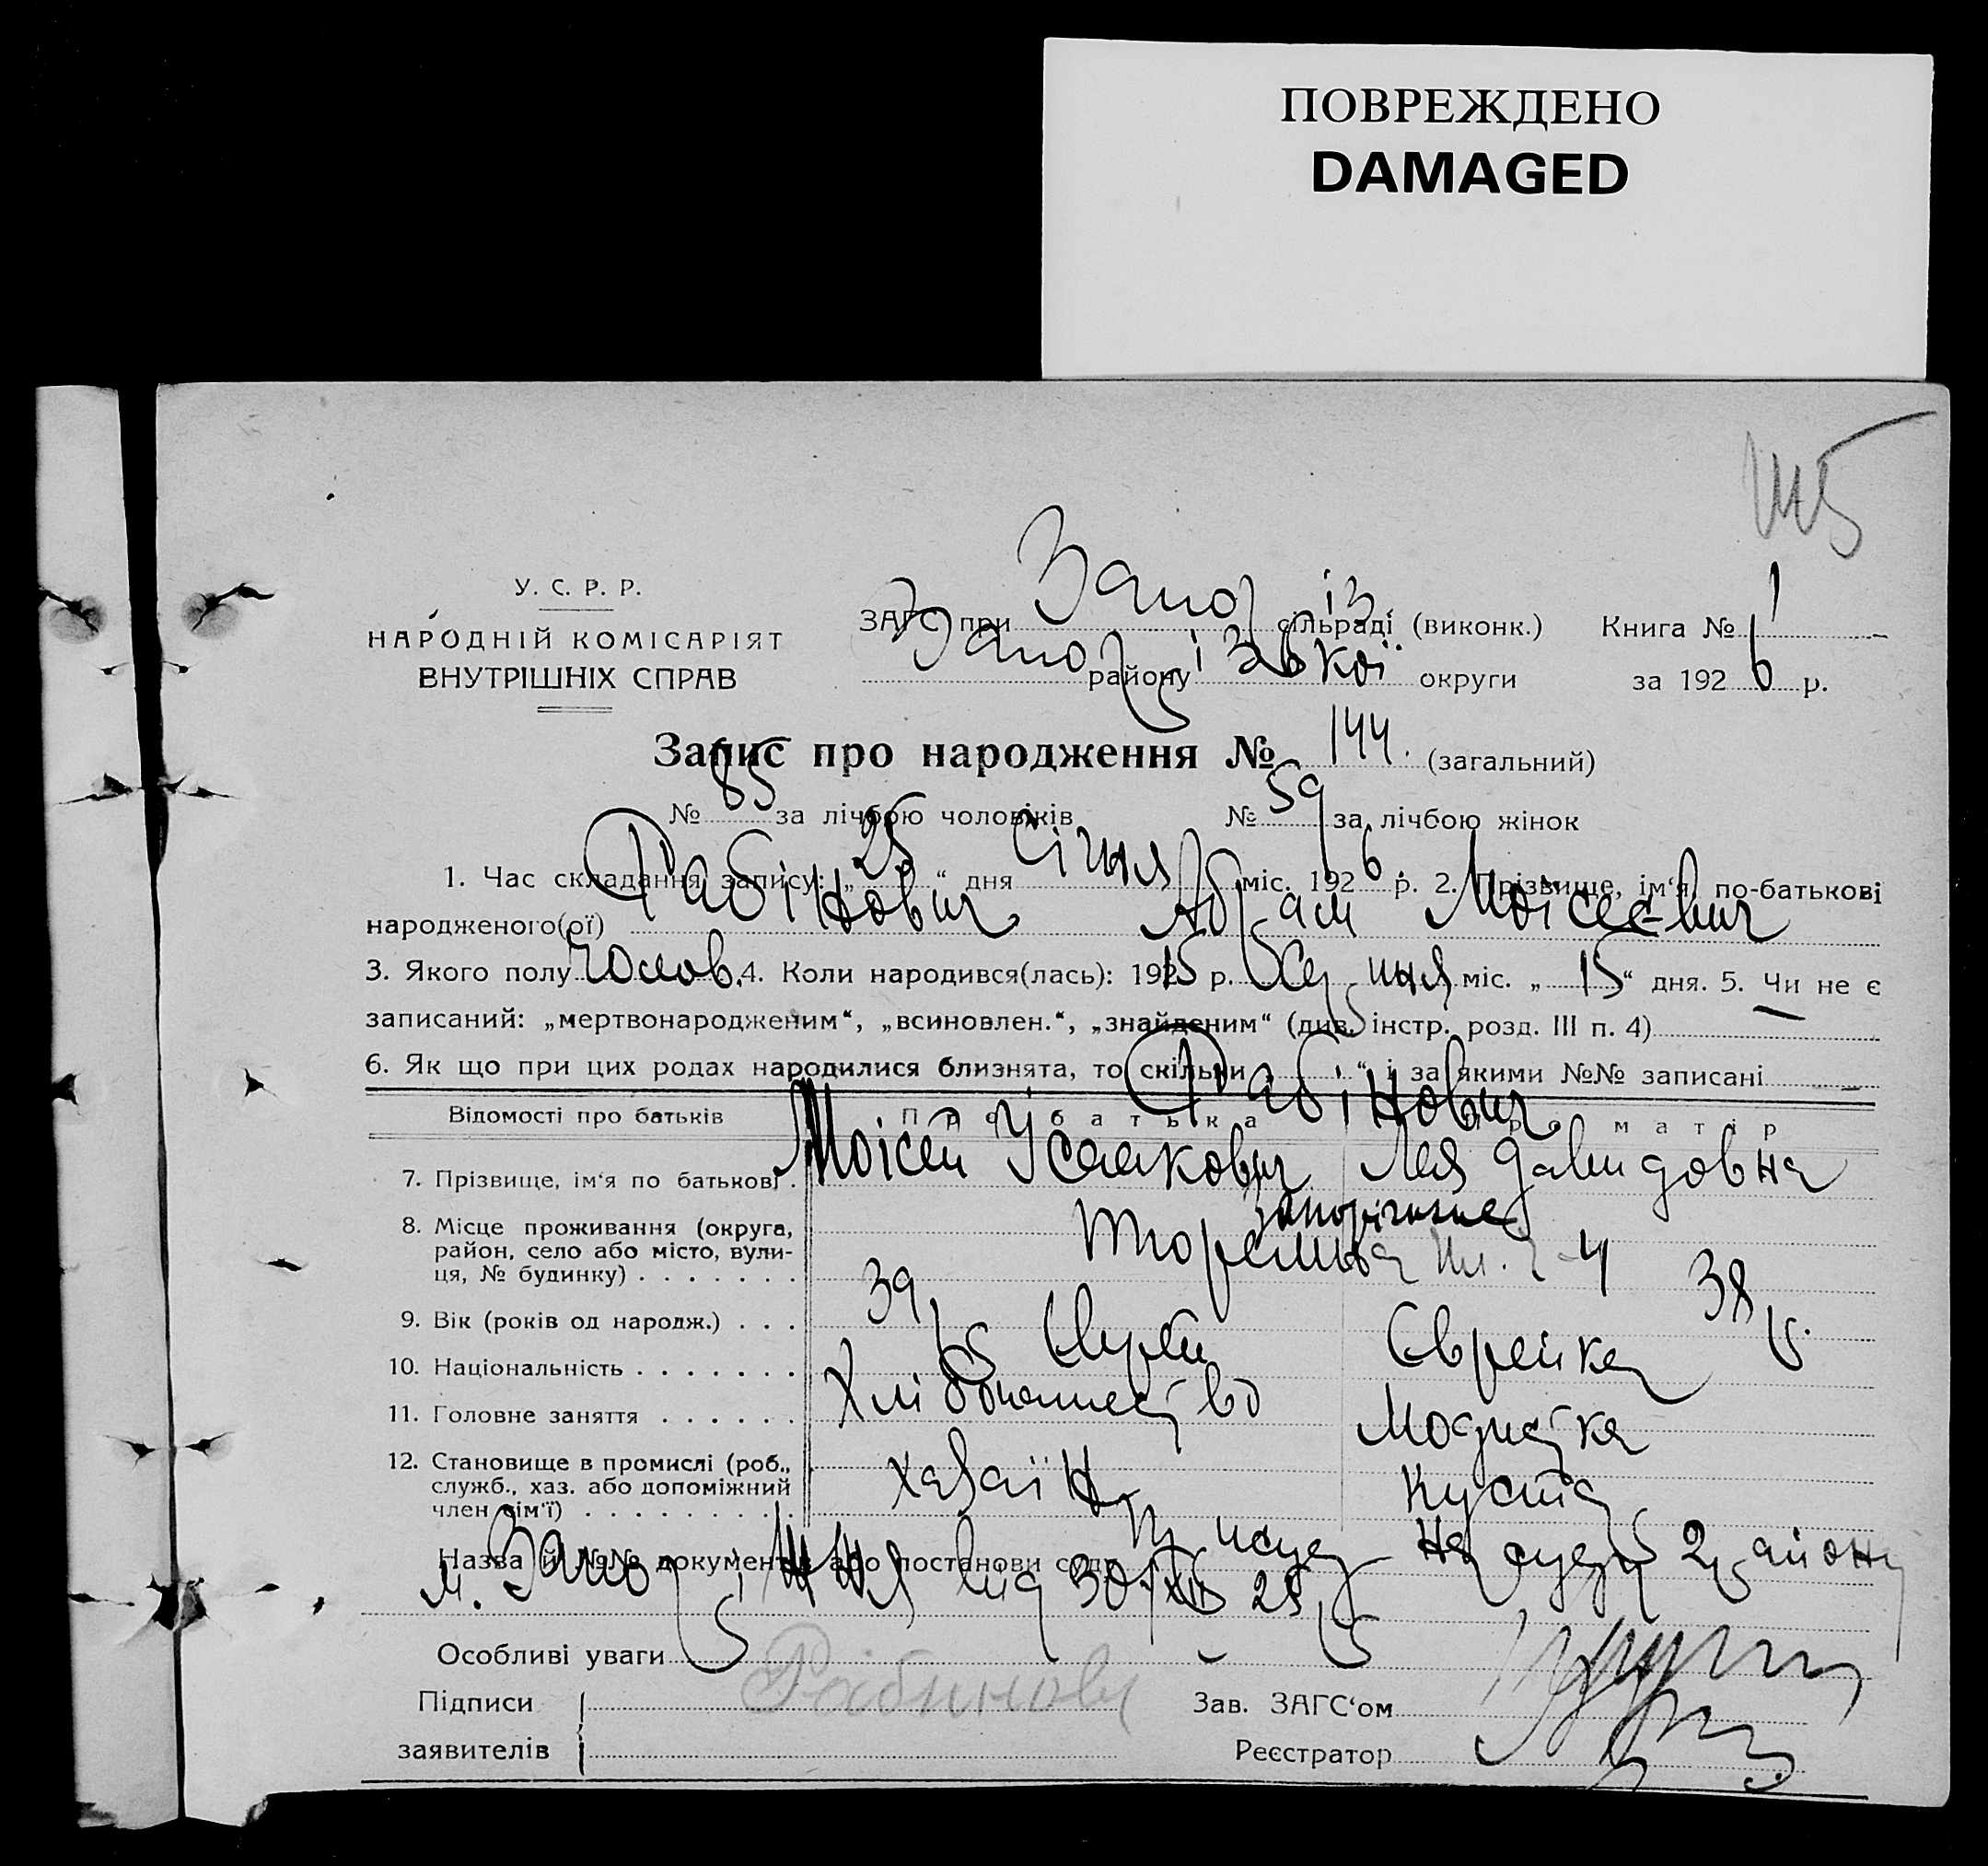 ПОВРЕЖДЕНО
DAMAGED
У. С. Р. Р.
НАРОДНІЙ КОМІСАРІЯТ
ВНУТРІШНІХ СПРАВ
ЗАГС при Запоріз. сільраді (виконк.) Книга № 1
району Запорізької округи за 1926 р.
Запис про народження № 144. (загальний)
№ 85 за лічбою чоловіків № 59 за лічбою жінок
1. Час складання запису: „25“ дня Січня міс. 1926 р. 2. Прізвище, ім‘я, по-батькові
народженого(ої) Рабінович Абрам Моісеєвич
3. Якого полу чолов. 4. Коли народився(лась): 1915 р. Серпня міс. „15“ дня. 5. Чи не є
записаний: „мертвонародженим“, „всиновлен.“, „знайденим“ (див. інстр. розд. III п. 4) —
6. Як що при цих родах народилися близнята, то скільки „ “ і за якими №№ записані —
Відомості про батьків Про батька Про матір
Рабінович
7. Прізвище, ім‘я по батькові . Моісей Усаакович Лея Давидовна
8. Місце проживання (округа,
район, село або місто, вули-
ця, № будинку) . . . . . . .
Запоріжжє
Тюремна пл. 4
9. Вік (років од народж.) . . . 39 р. 38 р.
10. Національність . . . . . . . Єврей Єврейка
11. Головне заняття . . . . . . Модистка
12. Становище в промислі (роб.,
служб., хаз. або допоміжний
член сім‘ї) . . . . . . . . .
хазаїн
Назва й №№ документів або постанови суду 2 району
м. Запоріжжя від 30/XII 25 р.
Особливі уваги —
Підписи
заявителів
Рабинови
Зав. ЗАГС‘ом
Реєстратор